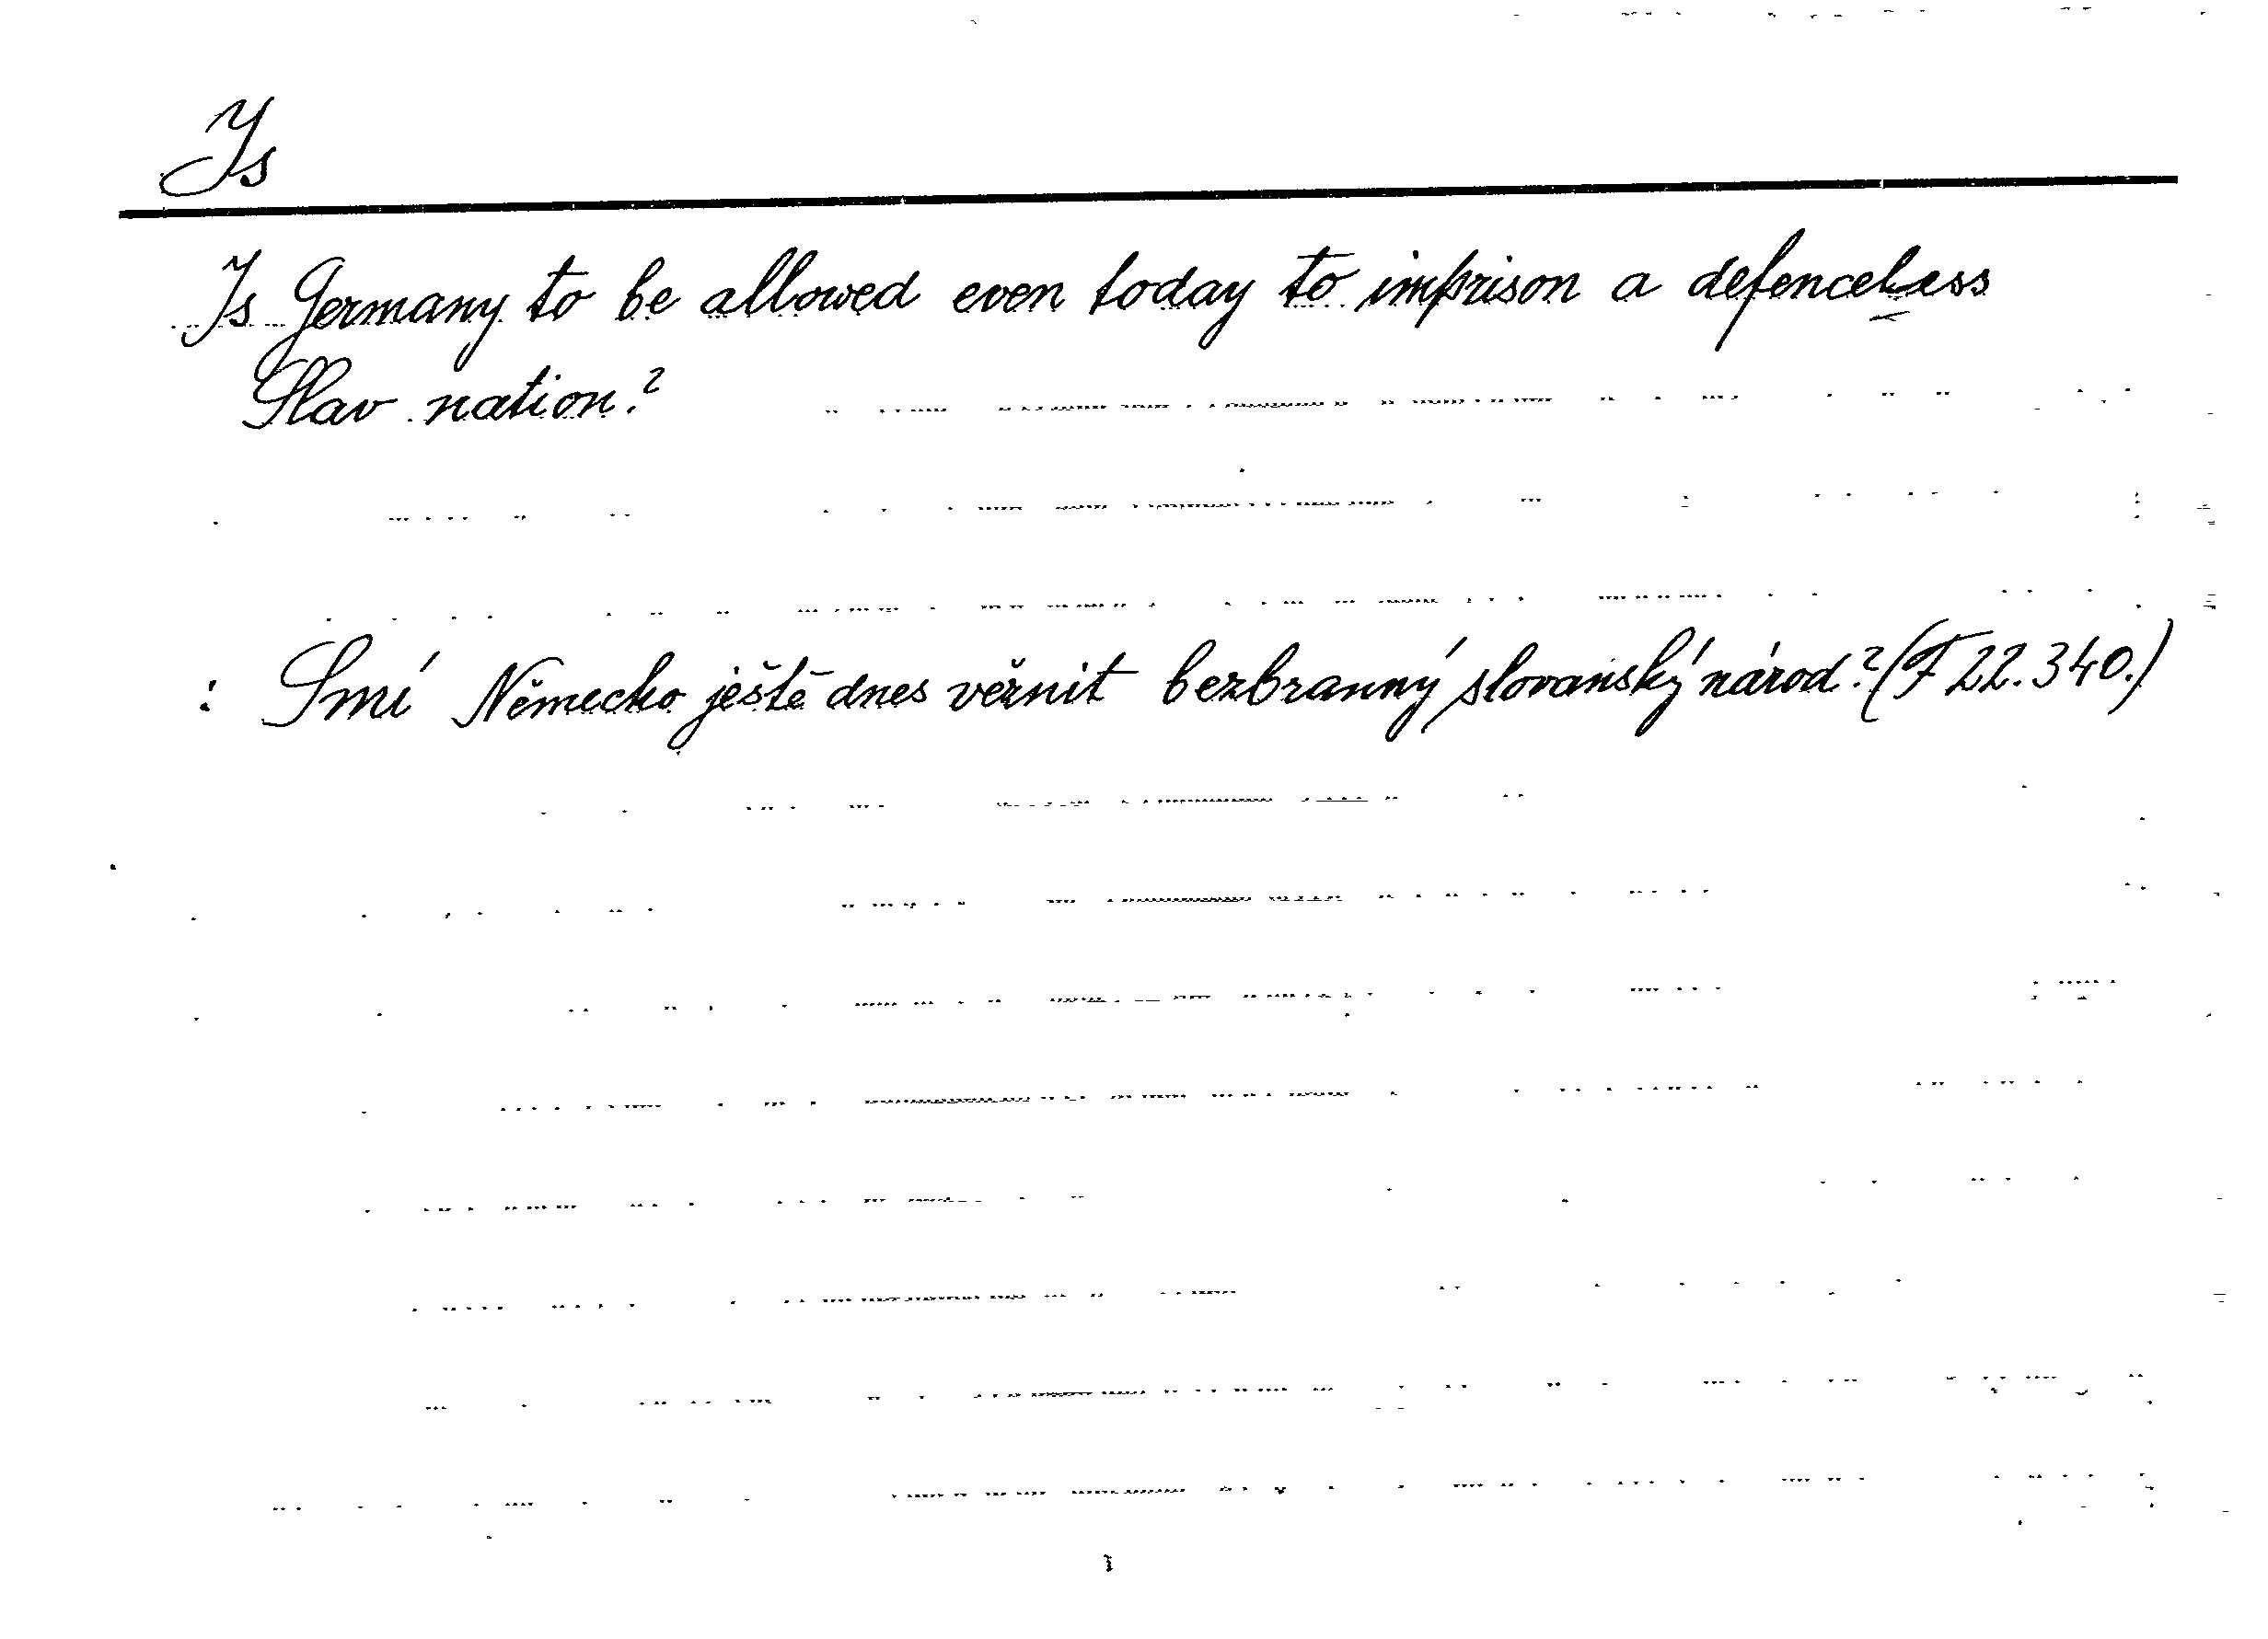 Is
Is Germany to be allowed even today to imprison a defenceless
Slav nation?
: Smí Německo ještě dnes věznit bezbranný slovanský národ? (F 22.340.)